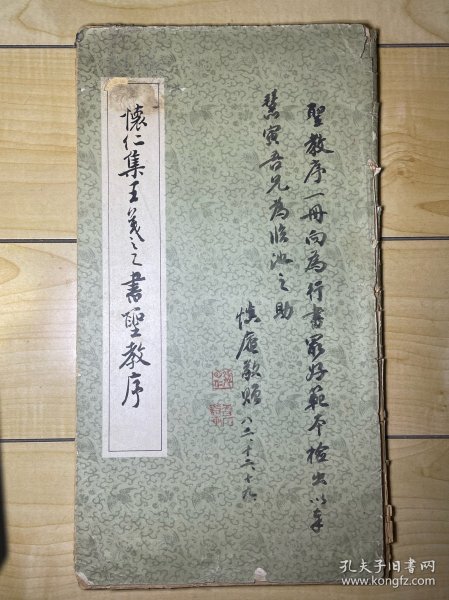 聖教序一冊向為行書最好範本檢出以奉
慧寅吾兄為臨池之助
慎庵敬贈
懷仁集王羲之書聖教序
孔夫子旧书网
www.kongfz.com